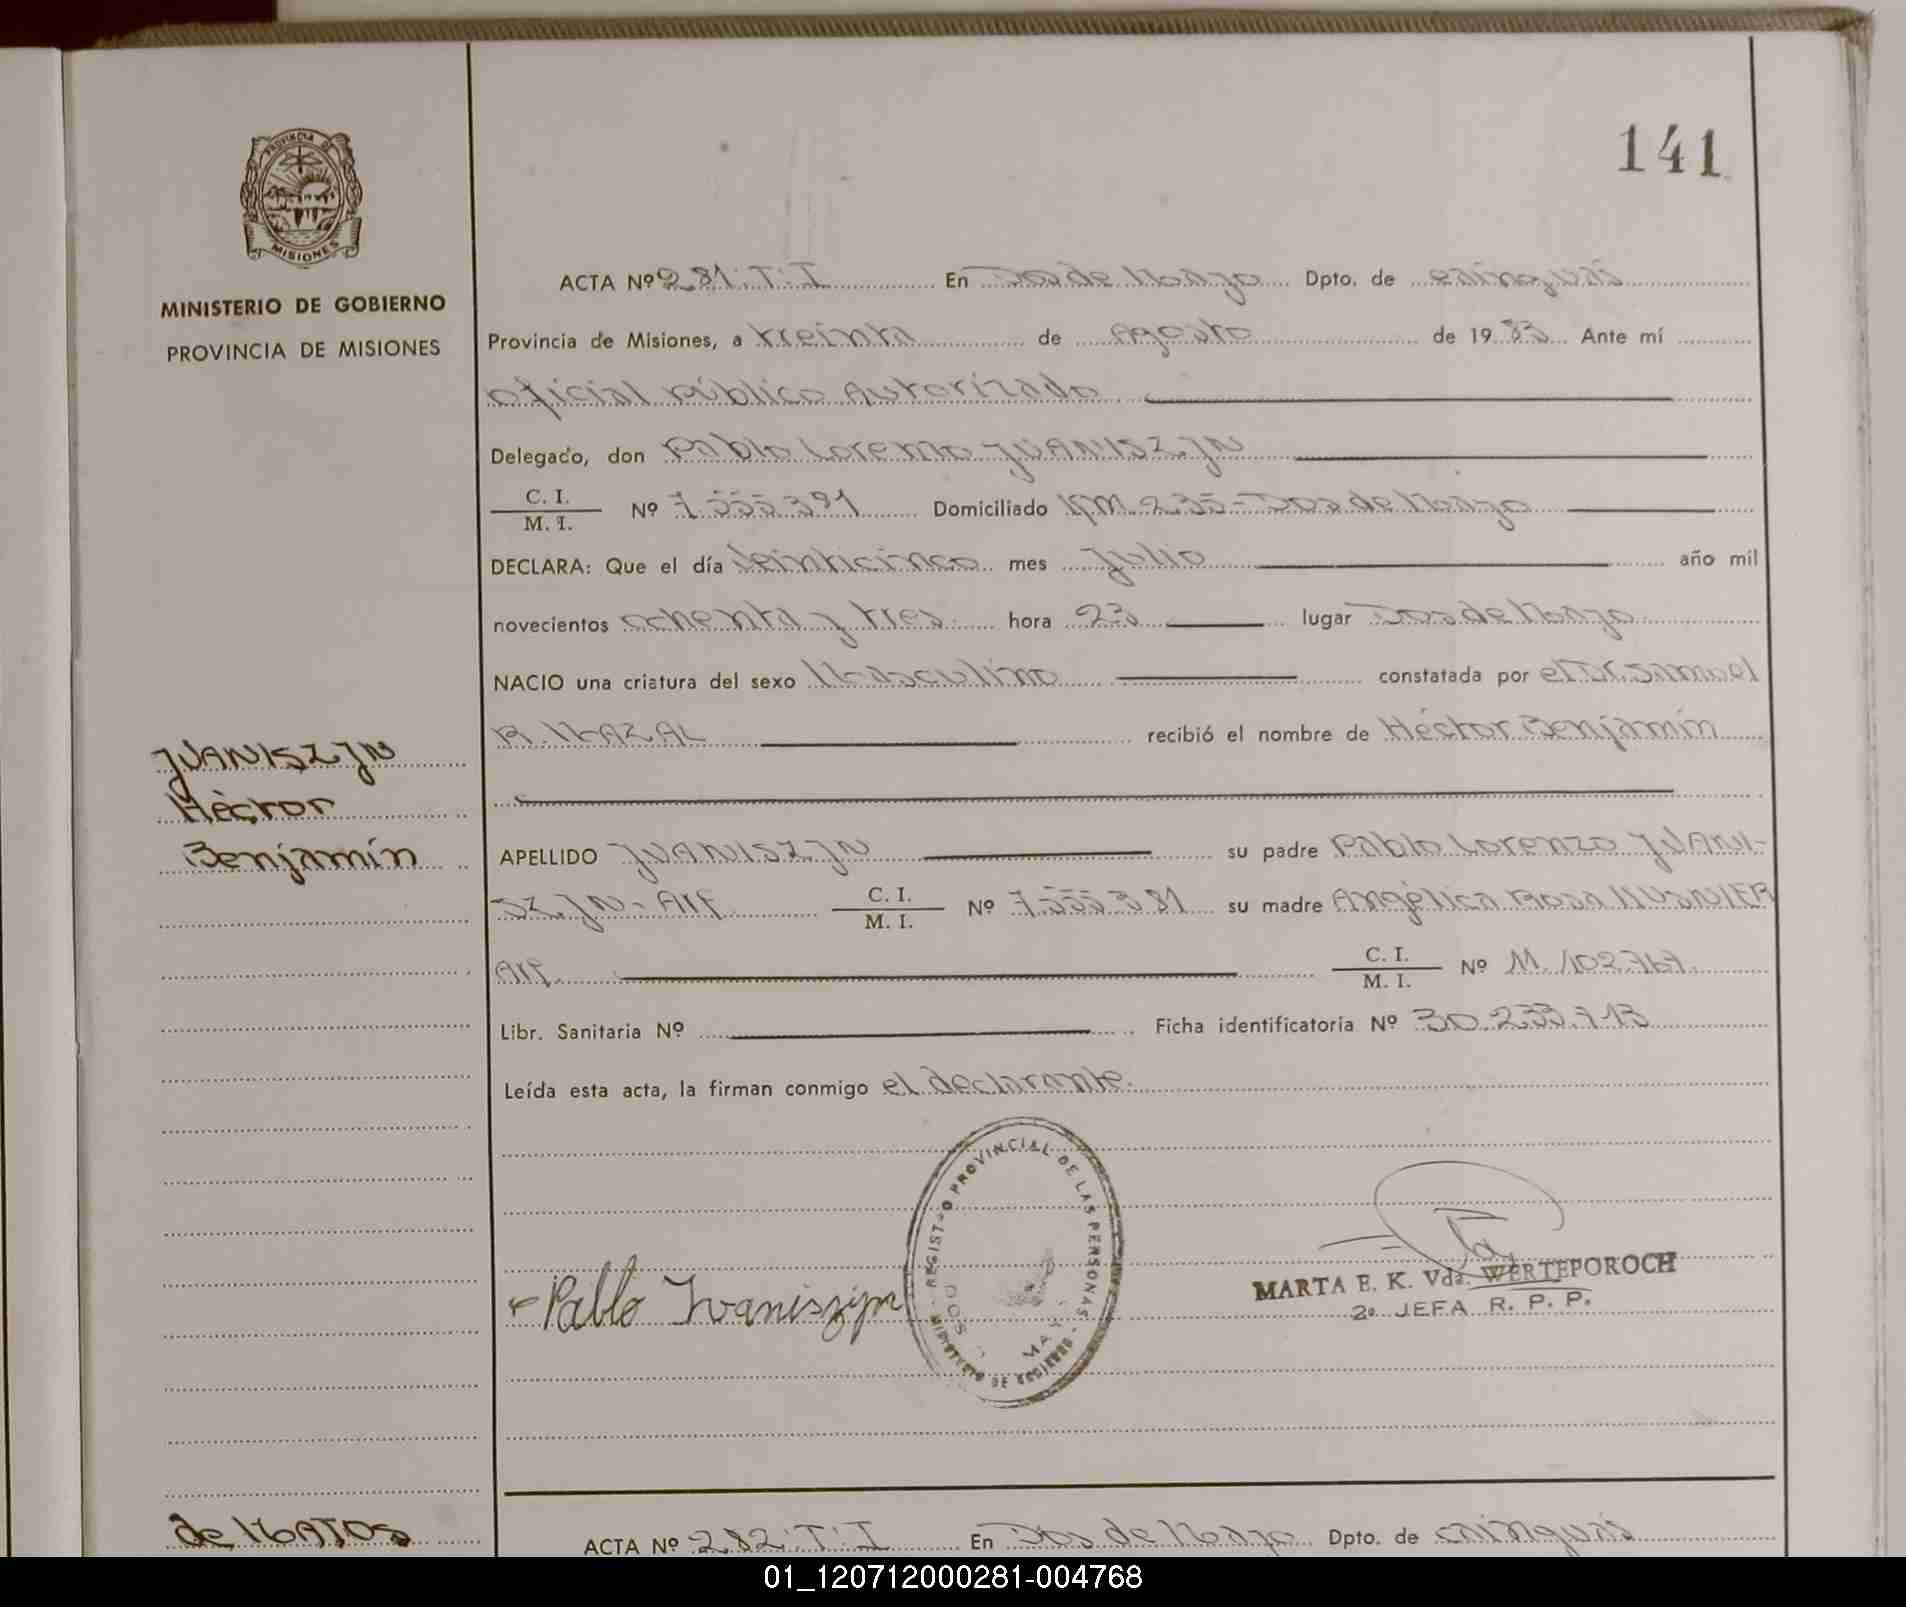 141
PROVINCIA DE
MISIONES
MINISTERIO DE GOBIERNO
PROVINCIA DE MISIONES
ACTA Nº 281.T.I En Dos de Mayo Dpto. de cainguás
Provincia de Misiones, a treinta de Agosto de 1983 Ante mí
oficial público Autorizado
Delegado, don Pablo Lorenzo JVANISZJN
C. I.
M. I. Nº 7.555.381 Domiciliado KM. 235-Dos de Mayo
DECLARA: Que el día Veinticinco mes Julio año mil
novecientos ochenta y tres. hora 23 lugar Dos de Mayo
NACIO una criatura del sexo Masculino constatada por el Dr. Samuel
R. MAZAL recibió el nombre de Héctor Benjamín
JVANISZJN
Héctor
Benjamín
APELLIDO JVANISZJN su padre Pablo Lorenzo JVANI-
SZJN - Arg C. I.
M. I. Nº 7.555.381 su madre Angélica Rosa
Arg. C. I.
M. I. Nº M.
Libr. Sanitaria Nº Ficha identificatoria Nº 30.
Leída esta acta, la firman conmigo el declarante.
REGISTRO PROVINCIAL DE LAS PERSONAS
MINISTERIO DE GOBIERNO
DOS MAY
Pablo Ivaniszyn
MARTA E. K. Vda. WERTEPOROCH
2º JEFA R. P. P.
de MATOS
ACTA Nº 282.T.I En Dos de Mayo Dpto. de cainguás
01_120712000281-004768